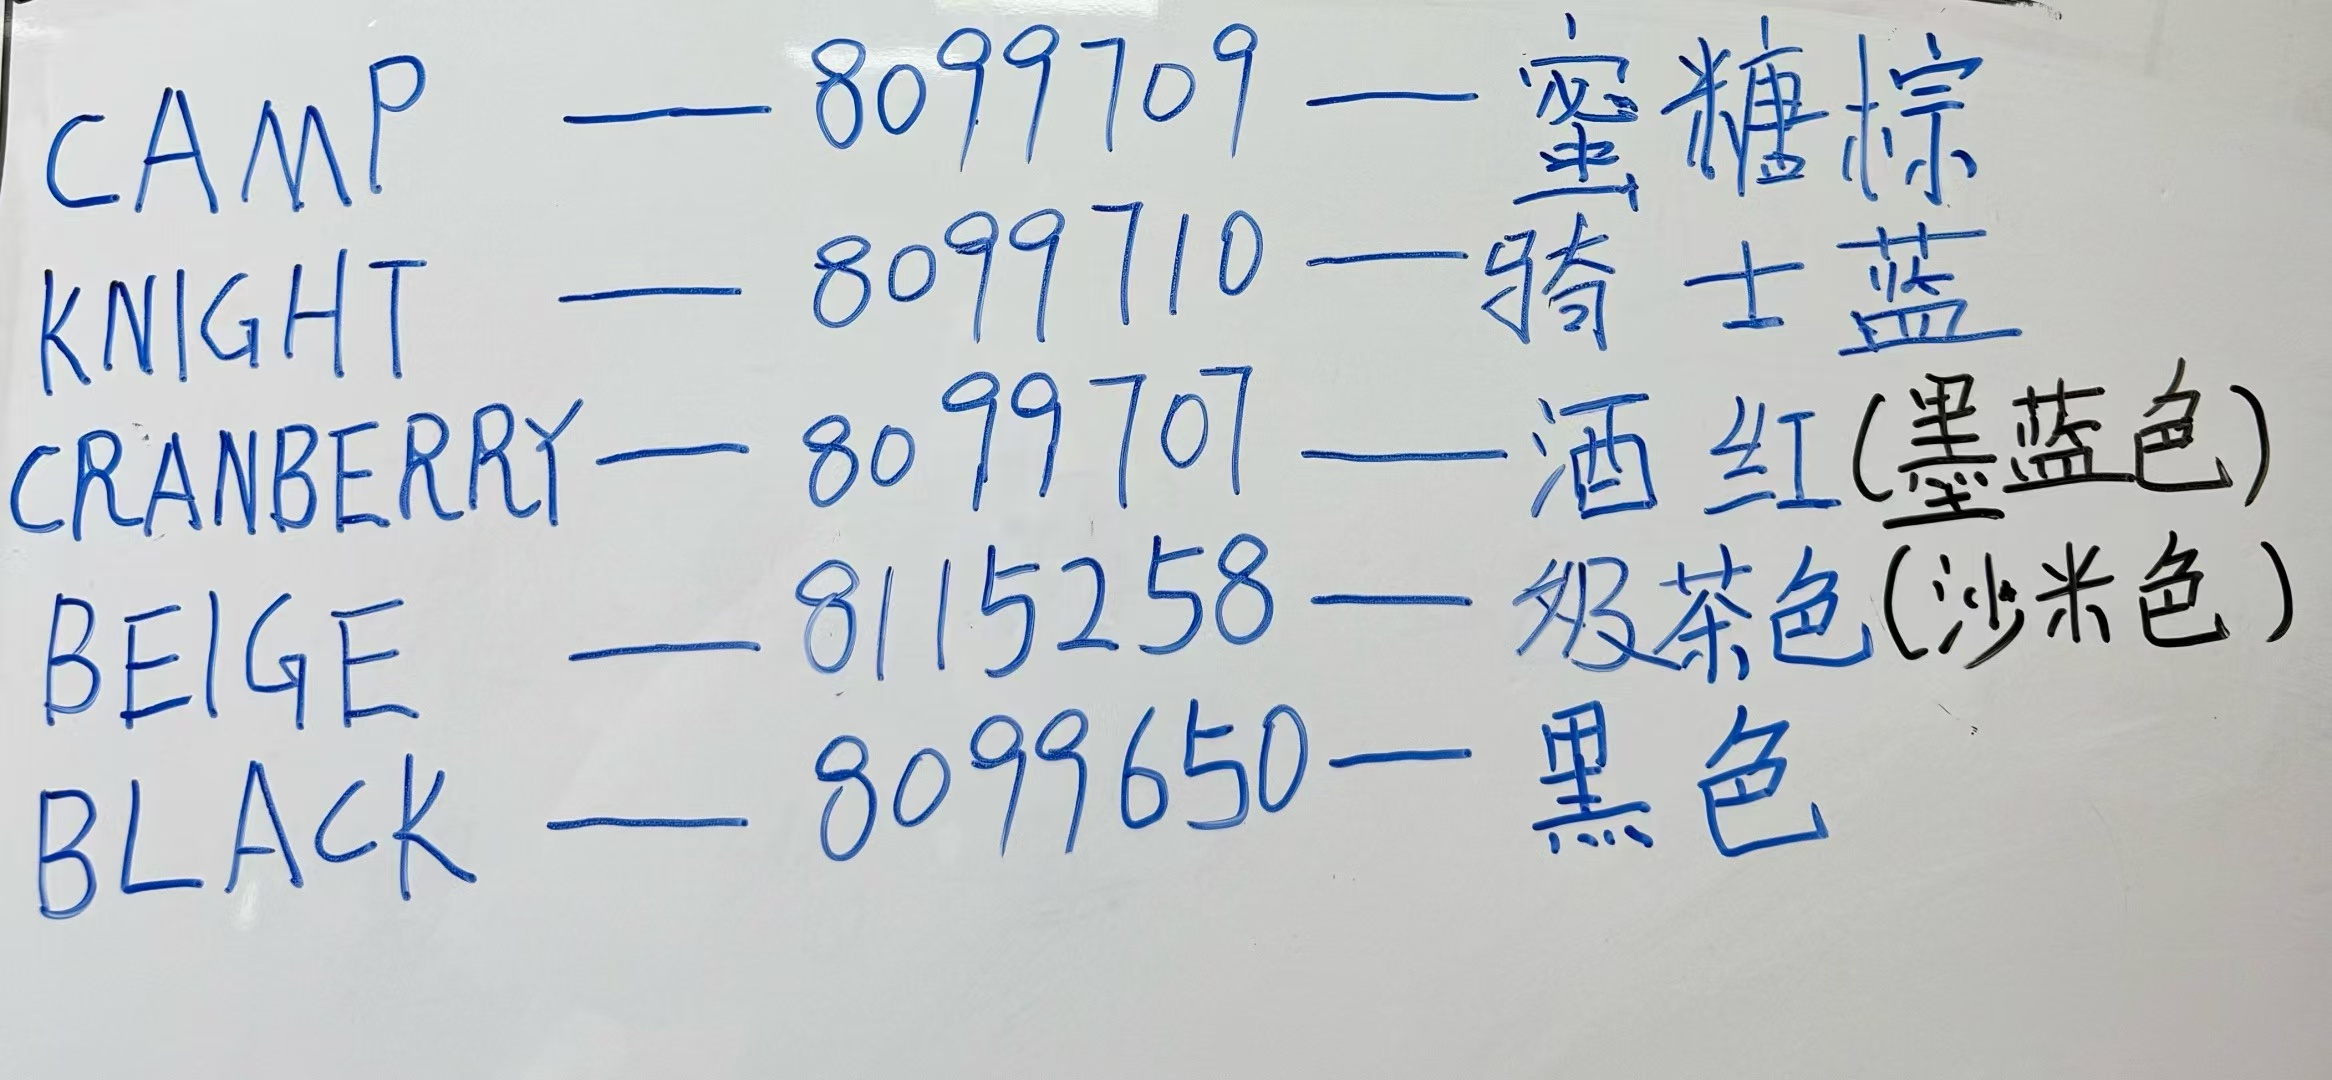 CAMP — 8099709 — 蜜糖棕
KNIGHT — 8099710 — 骑士蓝
CRANBERRY — 8099707 — 酒红(墨蓝色)
BEIGE — 8115258 — 奶茶色(沙米色)
BLACK — 8099650 — 黑色